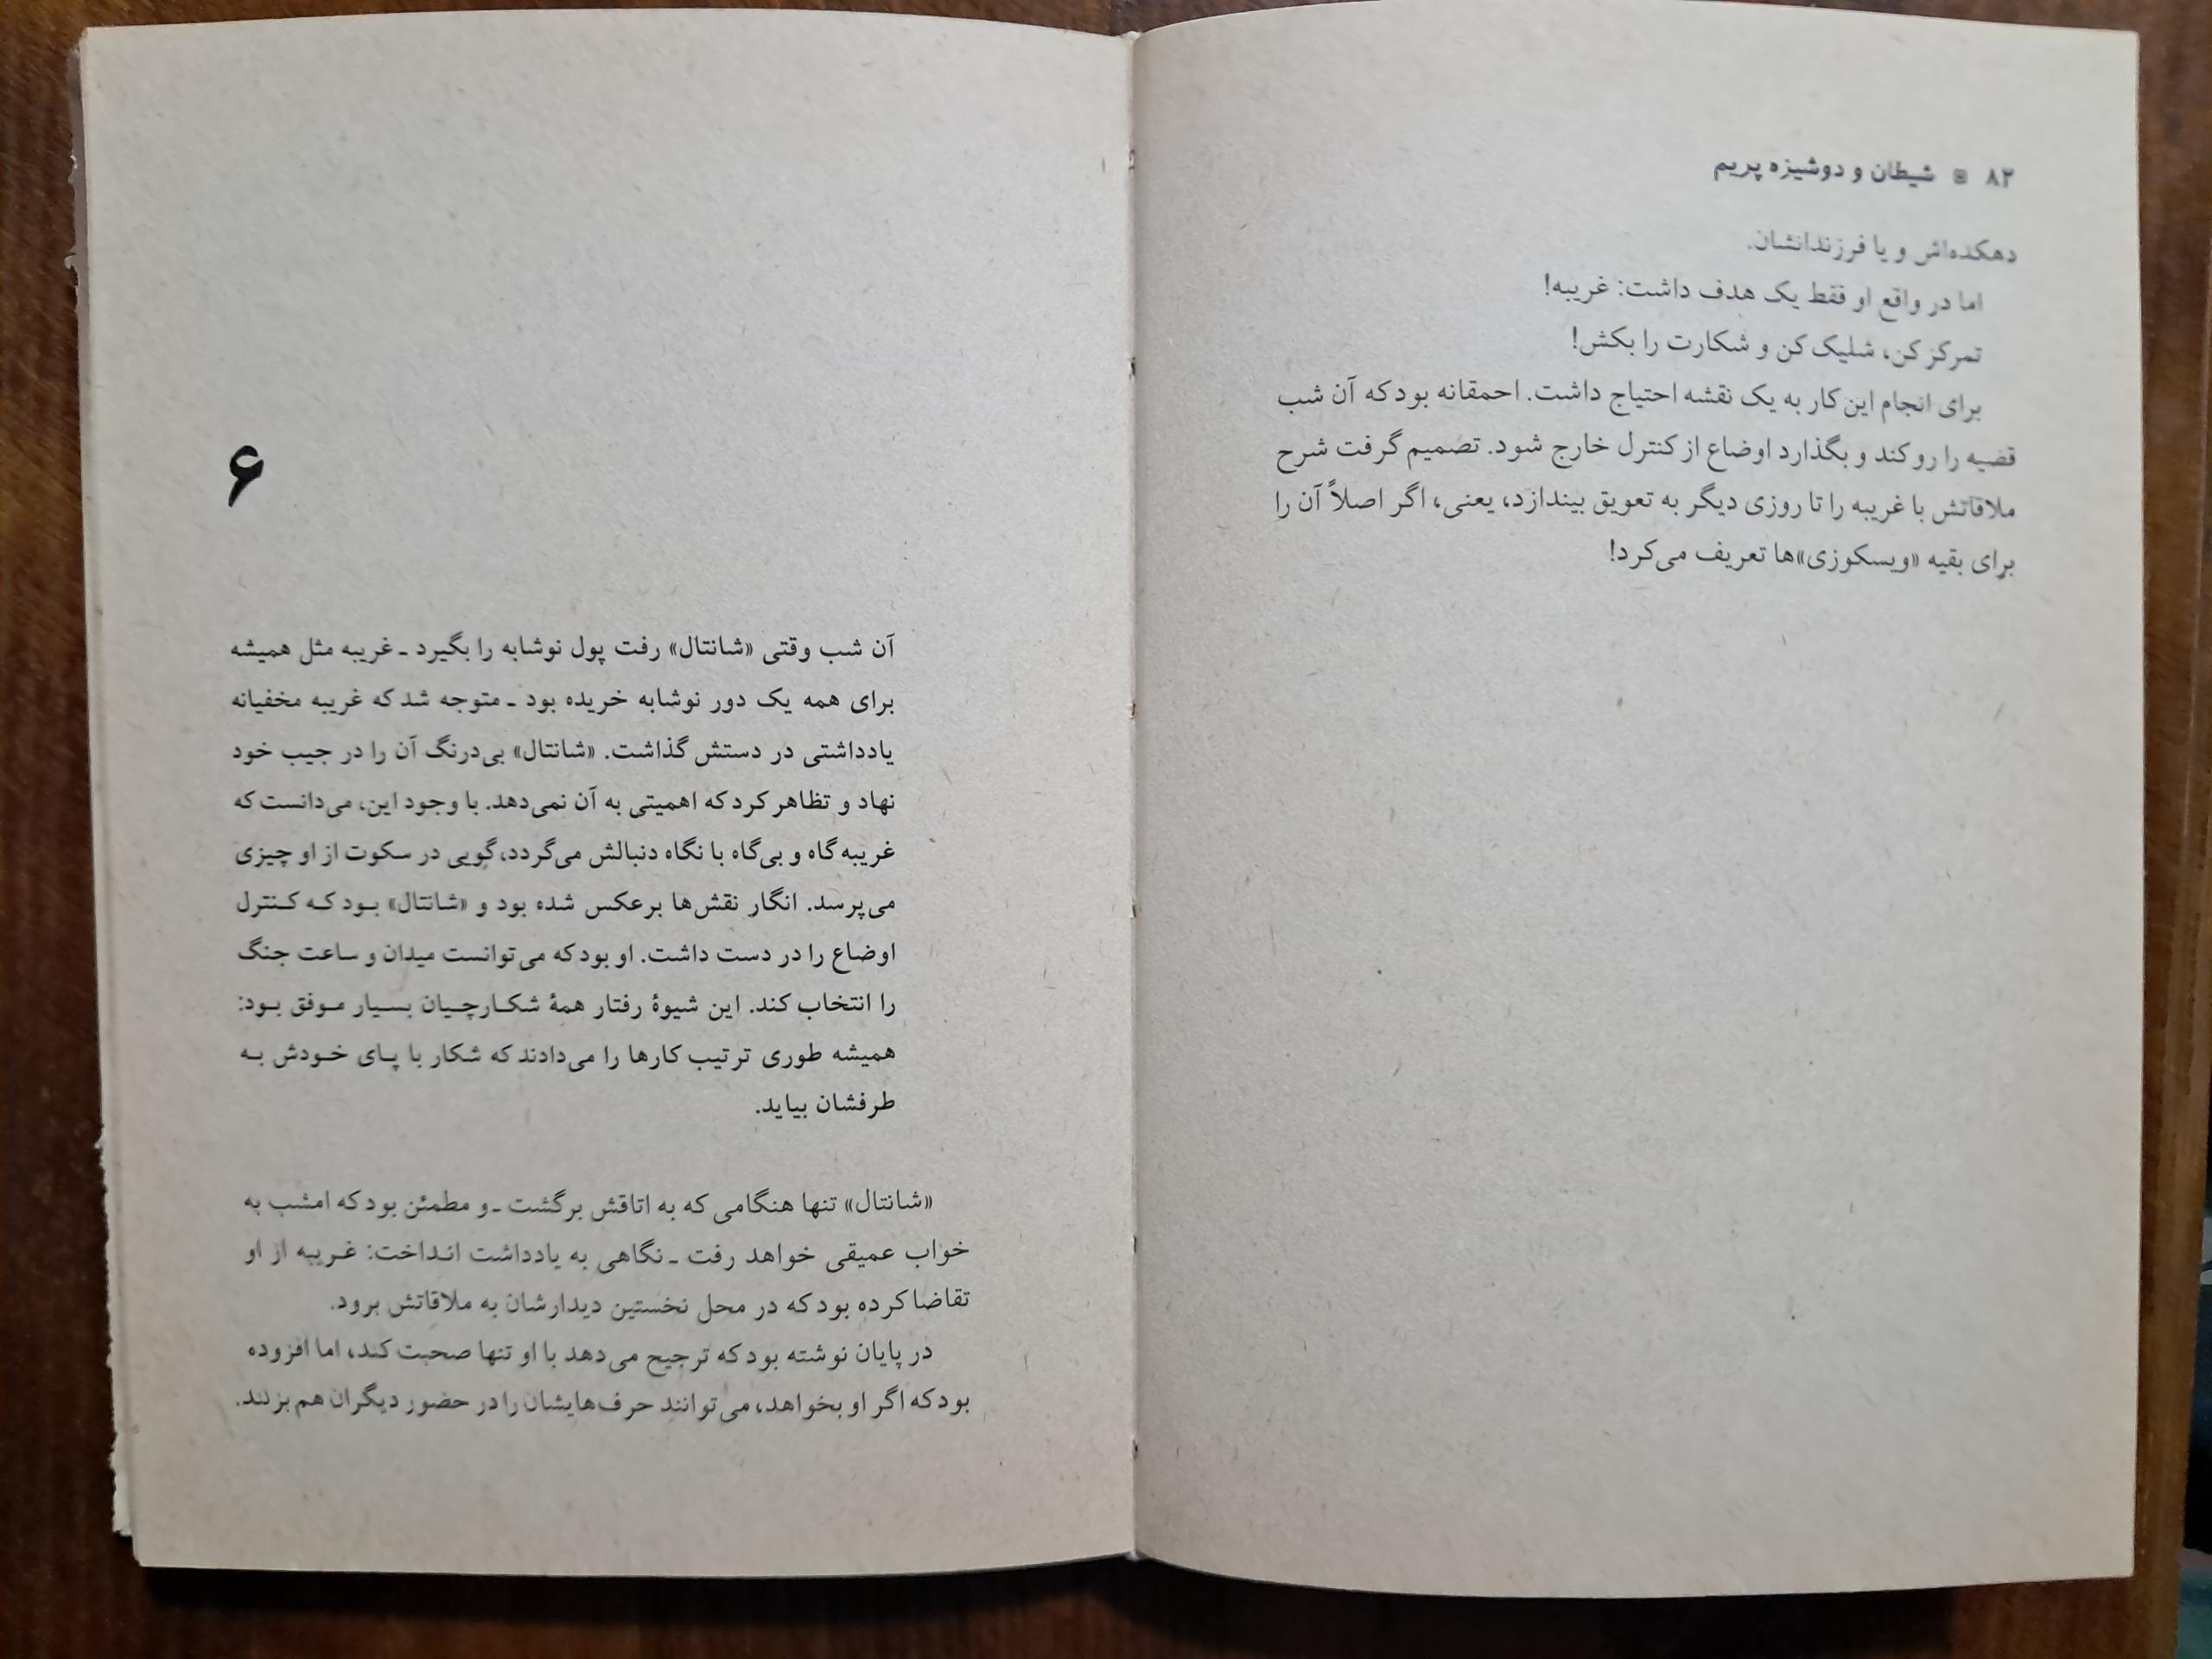 ۸۲ ▣ شیطان و دوشیزه پریم
دهکده‌اش و یا فرزندانشان.
اما در واقع او فقط یک هدف داشت: غریبه!
تمرکز کن، شلیک کن و شکارت را بکش!
برای انجام این کار به یک نقشه احتیاج داشت. احمقانه بود که آن شب
قضیه را رو کند و بگذارد اوضاع از کنترل خارج شود. تصمیم گرفت شرح
ملاقاتش با غریبه را تا روزی دیگر به تعویق بیندازد، یعنی، اگر اصلاً آن را
برای بقیه «ویسکوزی»ها تعریف می‌کرد!
۶
آن شب وقتی «شانتال» رفت پول نوشابه را بگیرد ـ غریبه مثل همیشه
برای همه یک دور نوشابه خریده بود ـ متوجه شد که غریبه مخفیانه
یادداشتی در دستش گذاشت. «شانتال» بی‌درنگ آن را در جیب خود
نهاد و تظاهر کرد که اهمیتی به آن نمی‌دهد. با وجود این، می‌دانست که
غریبه گاه و بی‌گاه با نگاه دنبالش می‌گردد، گویی در سکوت از او چیزی
می‌پرسد. انگار نقش‌ها برعکس شده بود و «شانتال» بود که کنترل
اوضاع را در دست داشت. او بود که می‌توانست میدان و ساعت جنگ
را انتخاب کند. این شیوهٔ رفتار همهٔ شکارچیان بسیار موفق بود:
همیشه طوری ترتیب کارها را می‌دادند که شکار با پای خودش به
طرفشان بیاید.
«شانتال» تنها هنگامی که به اتاقش برگشت ـ و مطمئن بود که امشب به
خواب عمیقی خواهد رفت ـ نگاهی به یادداشت انداخت: غریبه از او
تقاضا کرده بود که در محل نخستین دیدارشان به ملاقاتش برود.
در پایان نوشته بود که ترجیح می‌دهد با او تنها صحبت کند، اما افزوده
بود که اگر او بخواهد، می‌توانند حرف‌هایشان را در حضور دیگران هم بزنند.